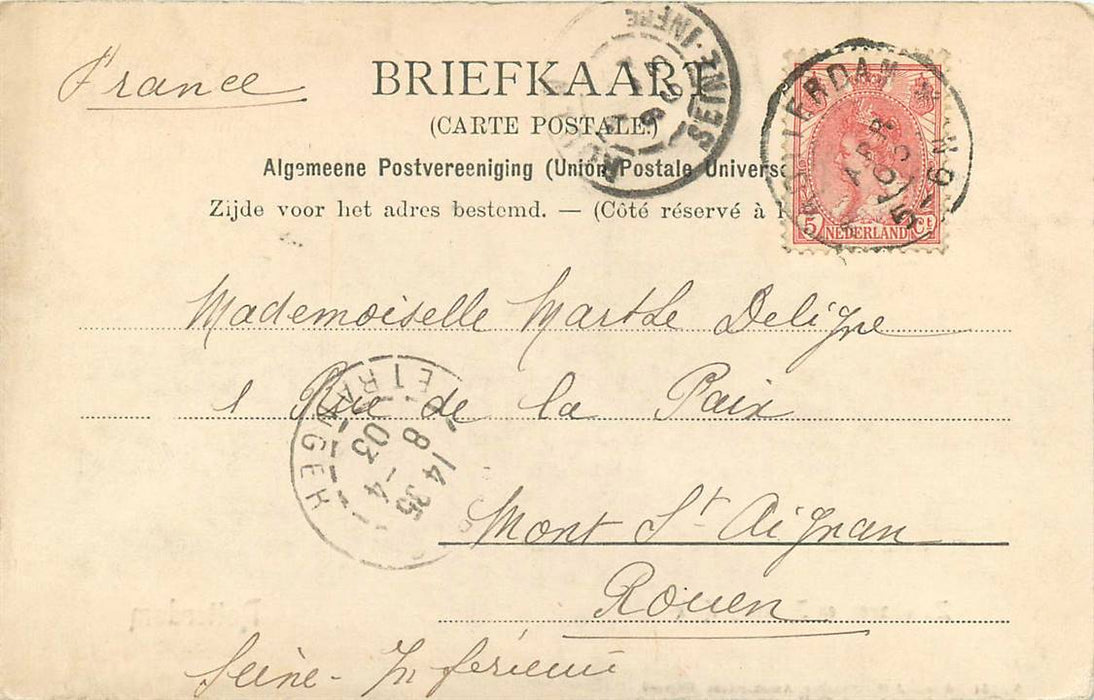 France
BRIEFKAART
(CARTE POSTALE.)
Algemeene Postvereeniging (Union Postale Universe
Zijde voor het adres bestemd. — (Côté réservé à
5 NEDERLAND Ct
SEINE-INFRE
Mademoiselle Marthe Deligne
1 Rue de la Paix
ETRANGER
14 35
8 - 4
03
Mont St Aignan
Rouen
Seine-Inférieure